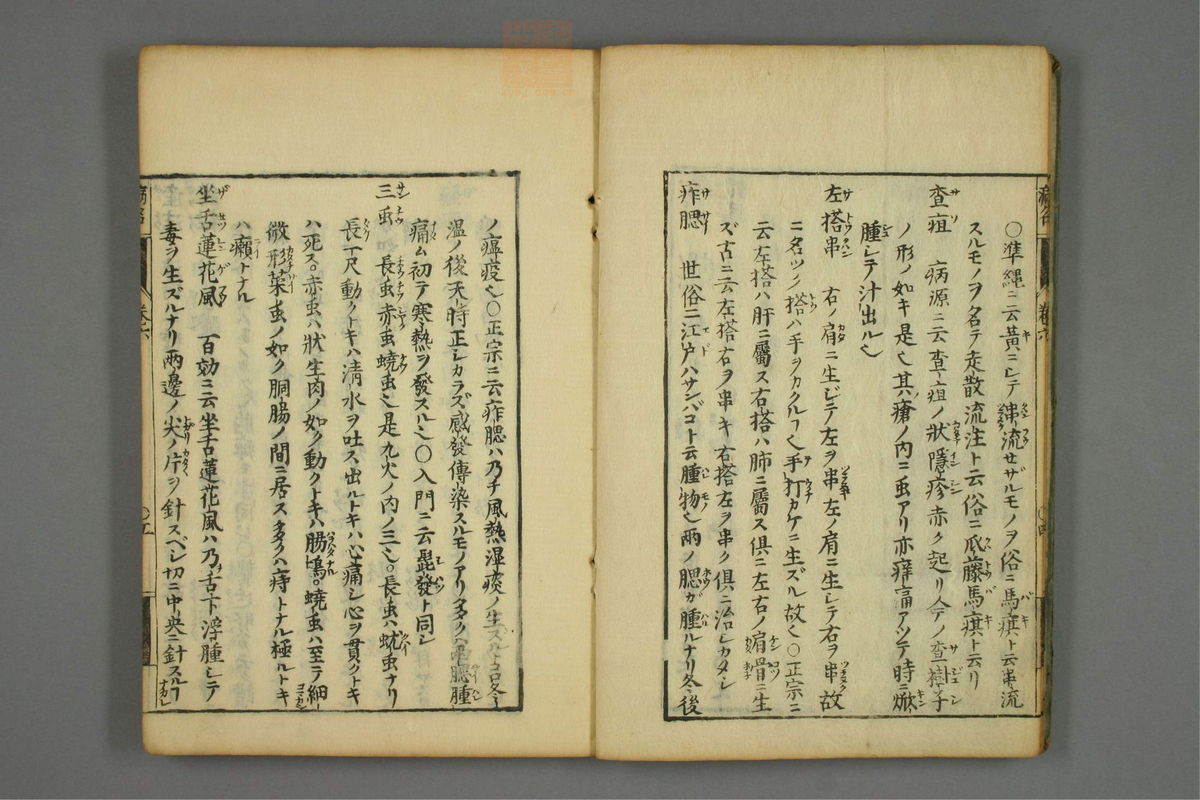 ○準繩ニ云黃ニシテ串流セザルモノヲ俗ニ馬䗫ト云串流
スルモノヲ名テ走散流注ト云俗ニ爪藤馬䗫ト云リ
查疽 病源ニ云查疽ノ狀隱疹赤ク起リ人テノ查𣠽子
ノ形ノ如キ是也其瘡ノ内ニ虫アリ亦痒痛アツテ時ニ焮
腫レテ汁出ル也
左搭串 右ノ肩ニ生ジテ左ヲ串左ノ肩ニ生シテ右ヲ串故
ニ名ツク搭ハ手ヲカクルヿ也手打カケニ生ズル故也○正宗ニ
云左搭ハ肝ニ屬ス右搭ハ肺ニ屬ス俱ニ左右ノ肩骨ニ生
ズ古ニ云左搭右ヲ串キ右搭左ヲ串ク俱ニ治シカタシ
痄腮 世俗ニ江戸ハサンバコト云腫物也兩ノ腮ガ腫ルナリ冬後
ノ瘟疫也○正宗ニ云痄腮ハ乃チ風熱湿痰ノ生スル所冬
温ノ後天時正シカラズ感發傳染スルモノアリ多クハ兩腮腫
痛ム初テ寒熱ヲ發スル也○入門ニ云髭發ト同シ
三虫 長虫赤虫蟯虫也是九虫ノ内ノ三也○長虫ハ蚘虫ナリ
長一尺動クトキハ清水ヲ吐ス出ルトキハ心痛シ心ヲ貫クトキ
ハ死ス○赤虫ハ狀生肉ノ如ク動クトキハ腸鳴○蟯虫ハ至テ細
微形菜虫ノ如ク胴腸ノ間ニ居ス多クハ痔トナル極ルトキ
ハ癩トナル
坐舌蓮花風 百効ニ云坐舌蓮花風ハ乃舌下浮腫シテ
毒ヲ生ズルナリ兩邊ノ尖ノ片ヲ針スベシ切ニ中央ニ針スルヿ